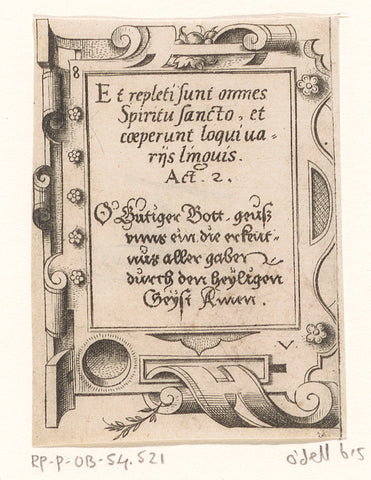 8
Et repleti sunt omnes
Spiritu sancto, et
cœperunt loqui ua-
rijs linguis.
Act. 2.
O Gütiger Gott, geuß
vnns ein die erkent-
nüs aller gaben
durch den heyligen
Geyst Amen.
V.
RP-P-OB-54.521